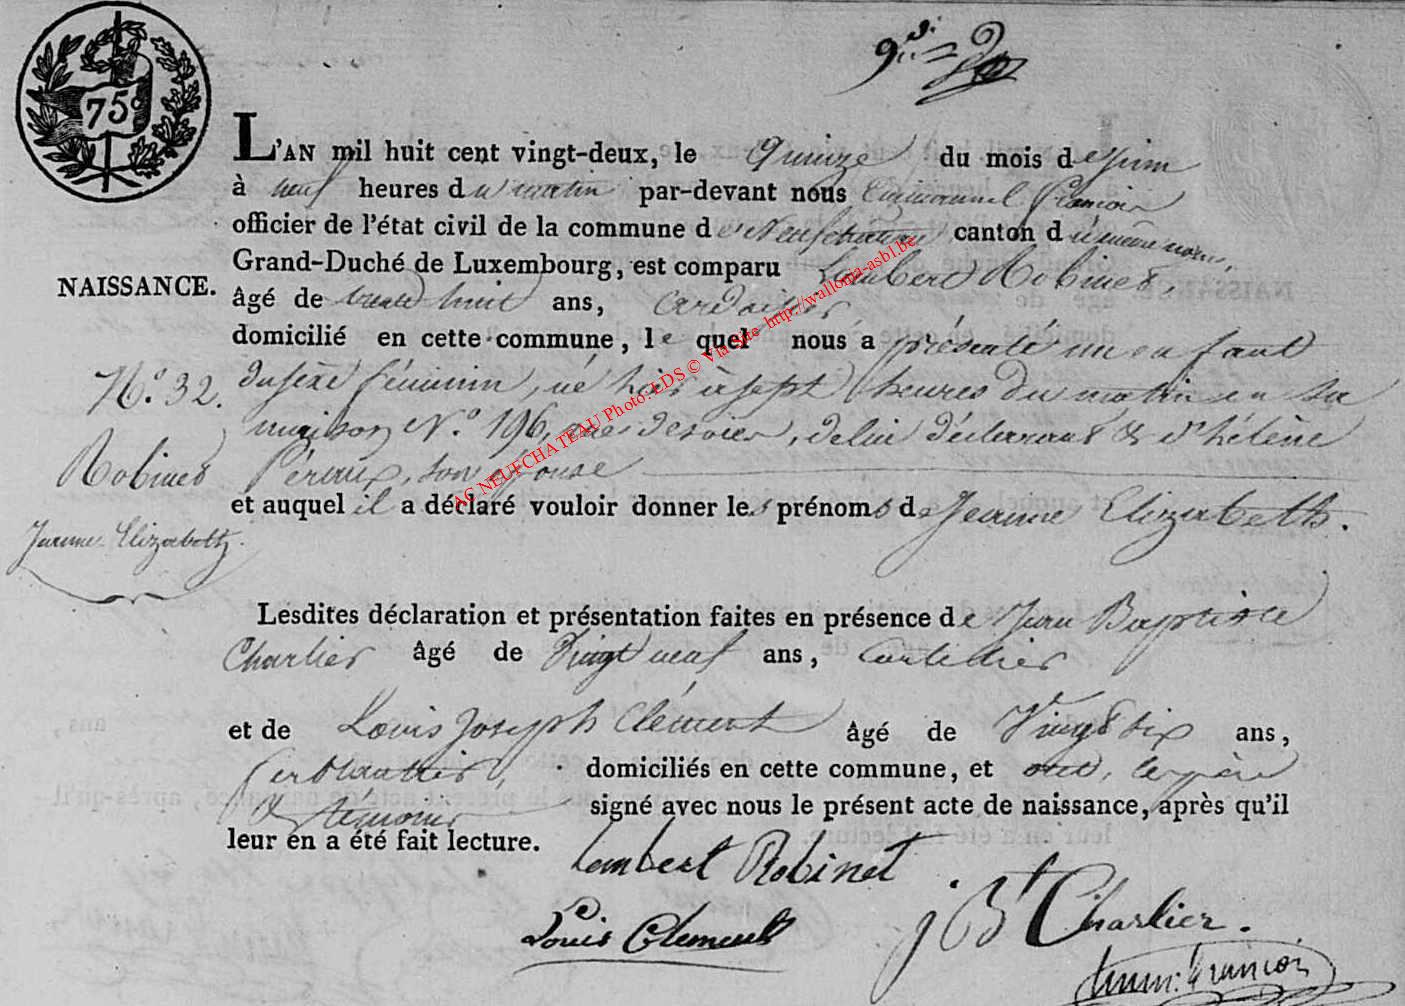 75c
L'AN mil huit cent vingt-deux, le Quinze du mois de juin
à neuf heures du matin par-devant nous Emmanuel François
officier de l'état civil de la commune de Neufchateau canton du même nom,
Grand-Duché de Luxembourg, est comparu Lambert Robinet,
NAISSANCE.
âgé de trente huit ans, Ardoisier
domicilié en cette commune, le quel nous a présenté un enfant
N.º 32.
du sexe féminin, né hier à sept heures du matin en sa
maison N.º 196, de lui déclarant & d'hélène
Robinet
Péraux, son epouse
et auquel il a déclaré vouloir donner les prénoms de Jeanne Elizabeth.
Jeanne Elizabeth.
AC NEUFCHATEAU Photo: LDS © Via Site http://wallonia-asbl.be
Lesdites déclaration et présentation faites en présence de Jean Baptiste
Charlier âgé de Vingt neuf ans,
et de Louis Joseph Clément âgé de Vingt six ans,
ferblantier, domiciliés en cette commune, et ont, le père
& témoins signé avec nous le présent acte de naissance, après qu'il
leur en a été fait lecture.
Lambert Robinet
Louis Clement
j Bt Charlier.
Emm: François